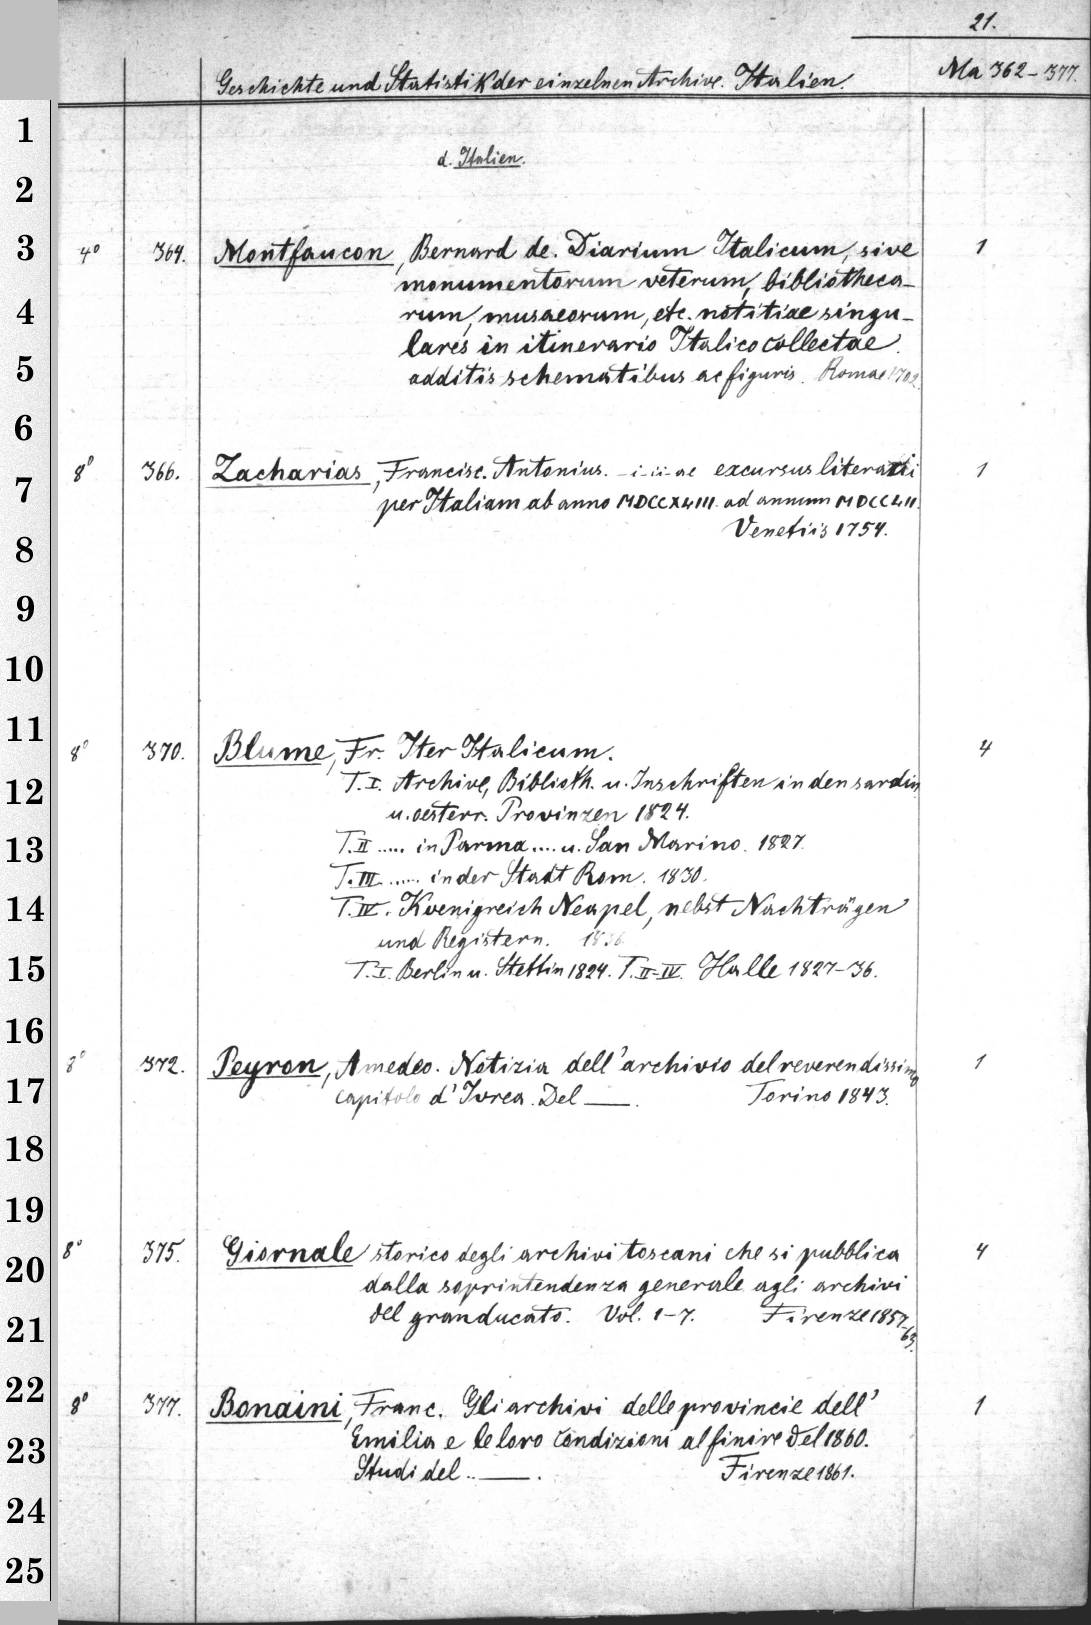 21.
Geschichte und Statistik der einzelnen Archive. Italien. Ma 362-377.
d. Italien.
1
2
3 4° 364. Montfaucon, Bernard de. Diarium Italicum, sive 1
monumentorum veterum, bibliotheca-
4 rum, musaeorum, etc. notitiae singu-
lares in itinerario Italico collectae.
5 additis schematibus ac figuris. Romae 1702.
6
7 8° 366. Zacharias, Francisc. Antonius. -i-ii-ae excursus literarii 1
per Italiam ab anno MDCCXLIII ad annum MDCCLII.
8 Venetiis 1754.
9
10
11 8° 370. Blume, Fr. Iter Italicum. 4
12 T.I. Archive, Biblioth. u. Inschriften in den sardin.
u. oesterr. Provinzen 1824.
13 T.II ..... in Parma .... u. San Marino. 1827.
T.III ...... in der Stadt Rom. 1830.
14 T.IV. Koenigreich Neapel, nebst Nachträgen
und Registern. 1836.
15 T.I. Berlin u. Stettin 1824. T.II-IV. Halle 1827-36.
16
17 8° 372. Peyron, Amedeo. Notizia dell'archivio del reverendissimo 1
capitolo d'Ivrea. Del ——. Torino 1843.
18
19
20 8° 375. Giornale storico degli archivi toscani che si pubblica 4
dalla soprintendenza generale agli archivi
21 del granducato. Vol. 1-7. Firenze 1857-
63.
22 8° 377. Bonaini, Franc. Gli archivi delle provincie dell' 1
23 Emilia e le loro condizioni al finire del 1860.
Studi del ..——. Firenze 1861.
24
25